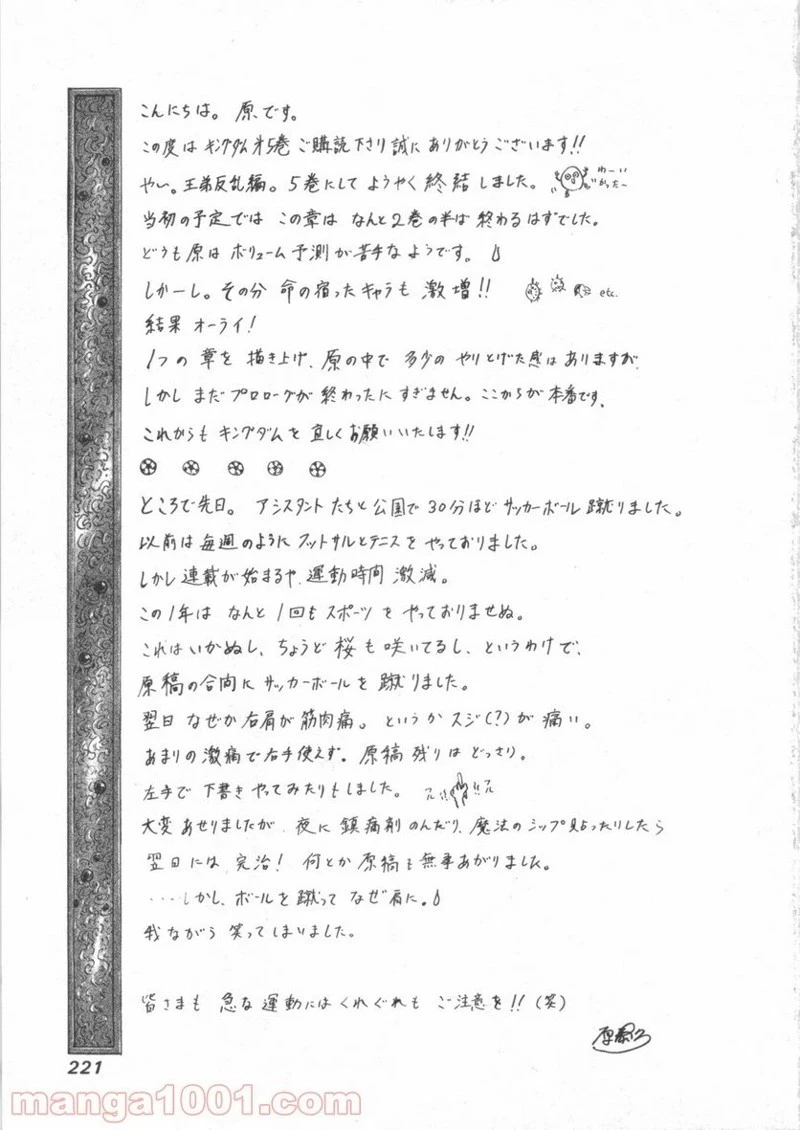 こんにちは。原です。
この度はキングダム第5巻ご購読下さり誠にありがとうございます!!
やい。王弟反乱編。5巻にしてようやく終結しました。わーいがったー
当初の予定ではこの章はなんと2巻の半ば終わるはずでした。
どうも原はボリューム予測が苦手なようです。
しかーし。その分命の宿ったキャラも激増!! etc.
結果オーライ!
1つの章を描き上げ、原の中で多少のやりとげた感はありますが、
しかしまだプロローグが終わったにすぎません。ここからが本番です。
これからもキングダムを宜しくお願いいたします!!
ところで先日。アシスタントたちと公園で30分ほどサッカーボール蹴りました。
以前は毎週のようにフットサルとテニスをやっておりました。
しかし連載が始まるや、運動時間激減。
この1年はなんと1回もスポーツをやっておりませぬ。
これはいかぬし、ちょうど桜も咲いてるし、というわけで、
原稿の合間にサッカーボールを蹴りました。
翌日なぜか右肩が筋肉痛。というかスジ(?)が痛い。
あまりの激痛で右手使えず。原稿残りはどっさり。
左手で下書きやってみたりもしました。
大変あせりましたが、夜に鎮痛剤のんだり、魔法のシップ貼ったりしたら
翌日には完治!何とか原稿も無事あがりました。
・・・しかし、ボールを蹴ってなぜ肩に。
我ながら笑ってしまいました。
皆さまも急な運動にはくれぐれもご注意を!!(笑)
原泰久
221
manga1001.com